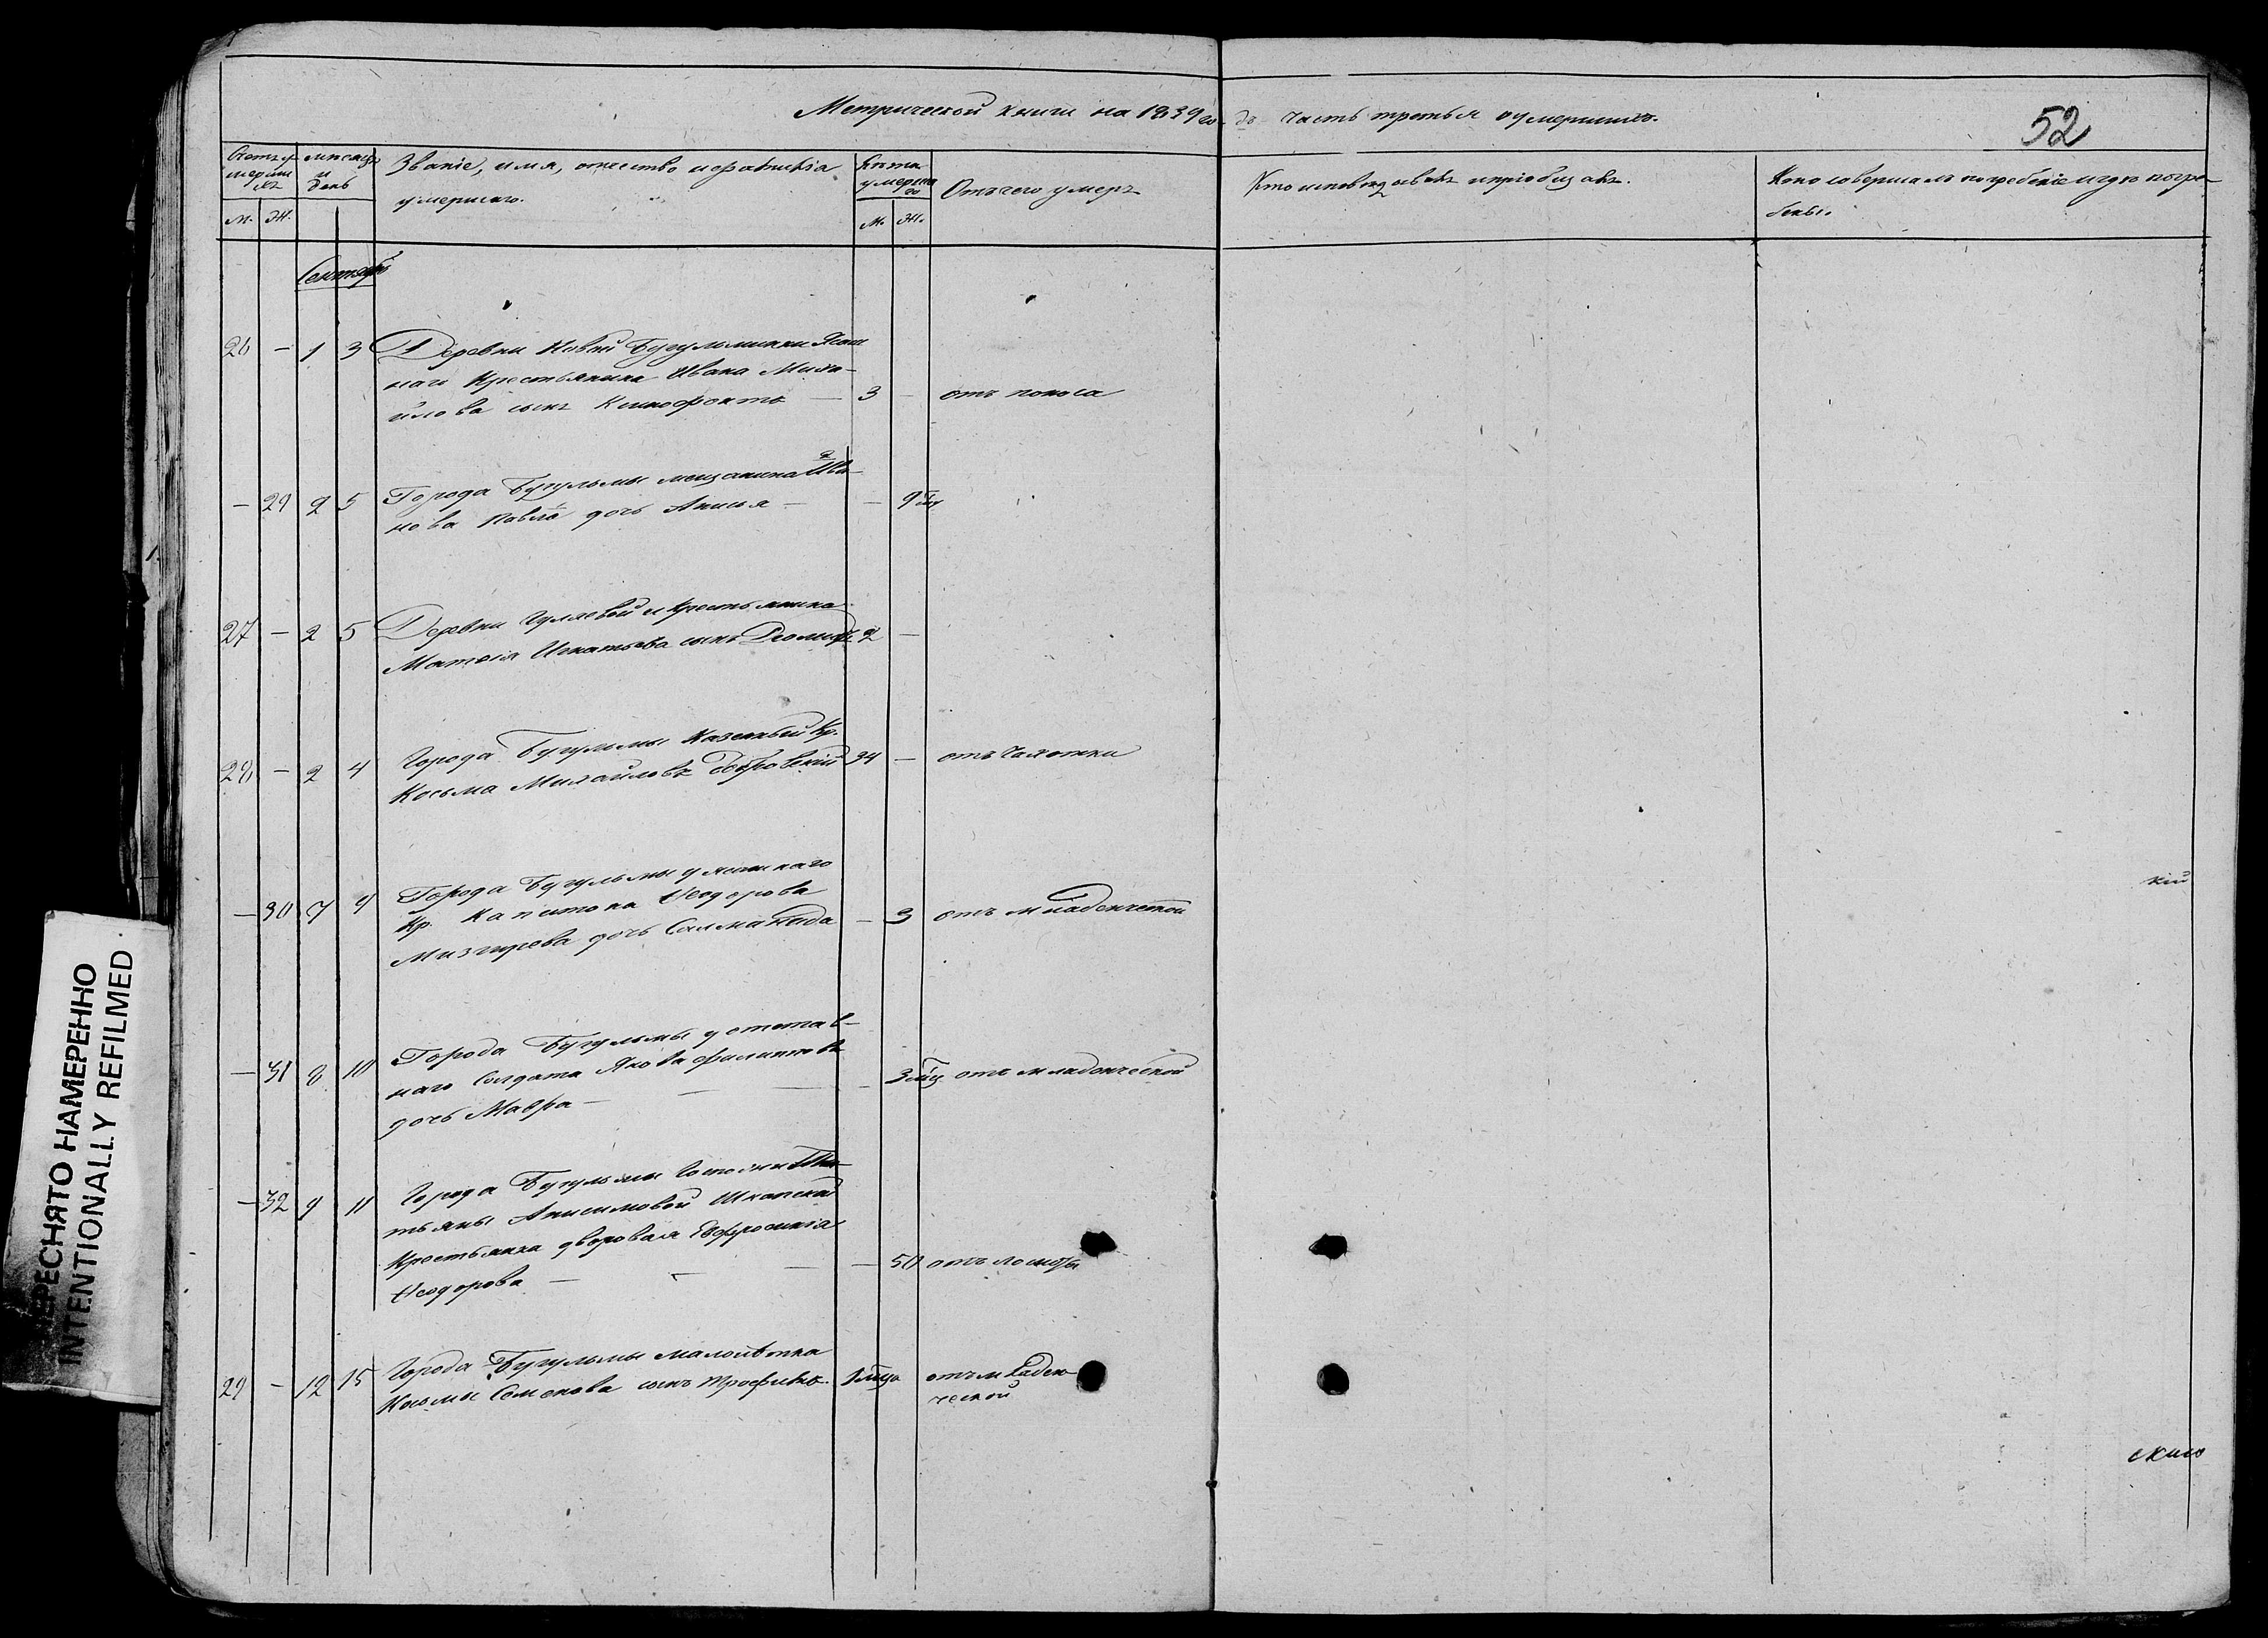 Метрической книги на 1839 го-дъ часть третья о умершихъ.
52
Счетъ умершихъ
мѣсяцъ и день
Званіе, имя, отчество и фамилія умершаго.
Лѣта умершаго
Отъ чего умеръ
Кто исповѣдовалъ и пріобщалъ.
Кто совершалъ погребеніе и гдѣ погребены.
М. Ж.
М. Ж.
Сентябрь
26 — 1 3 Деревни Новой Бугульминки Ясаш
наго Крестьянина Ивана Миха-
йлова сынъ — 3 — отъ поноса
— 29 2 5 Города Бугульмы мещанина Ива-
нова Павла дочь Анисья — — 9 мц
27 — 2 5 Деревни Крестьянина
Матвія Игнатьева сынъ Діомидъ 2 —
28 — 2 4 Города Бугульмы Казенный Кр.
Косьма Михайловъ 34 — отъ Чахотки
— 30 7 9 Города Бугульмы у ясашнаго
Кр. Капитона Ѳеодорова
Мизгирева дочь — 3 отъ младенческой
— 31 8 10 Города Бугульмы у отстав-
наго Солдата Якова Филиппова
дочь Мавра — — — — 3 мц отъ младенческой
— 32 9 11 Города Бугульмы Госпожи Та-
тьяны Анисимовой
Крестьянка дворовая Евфросинія
Ѳеодорова — — — — 50 отъ
29 — 12 15 Города Бугульмы малолѣтка
Косьмы Семенова сынъ Трофимъ. 1 мца отъ младен-
ческой
кій
скаго
ПЕРЕСНЯТО НАМЕРЕННО
INTENTIONALLY REFILMED